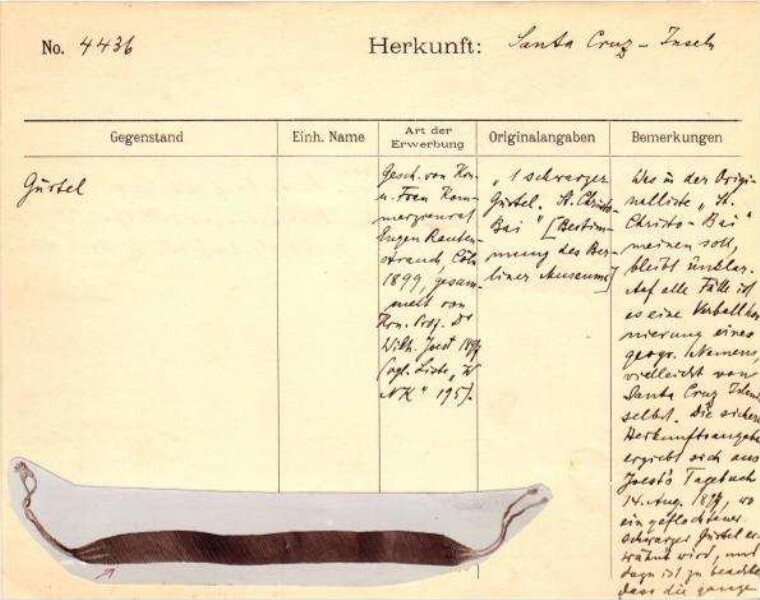 No. 4436 Herkunft: Santa Cruz - Inseln
Gegenstand
Einh. Name
Art der
Erwerbung
Originalangaben
Bemerkungen
Gürtel
Gesch. von Hrn.
u. Frau Kom-
merzienrat
Eugen Rauten-
strauch, Cöln
1899, gesam-
melt von
Hrn. Prof. Dr
Wilh. Joest 1897
(vgl. Liste „W
NK" 195).
„1 schwarzer
Gürtel. St. Christo-
Bai" [Bestim-
mung des Ber-
liner Museums]
Was in der Origi-
nalliste „St.
Christo-Bai"
meinen soll,
bleibt unklar.
Auf alle Fälle ist
es eine Verballhor
nierung eines
geogr. Namens,
vielleicht von
Santa Cruz
selbst. Die sichere
Herkunftsangabe
ergiebt sich aus
Joest's Tagebuch
14. Aug. 1897, wo
ein geflochtener
schwarzer Gürtel er-
wähnt wird, und
dazu ist zu beachte
dass die ganze